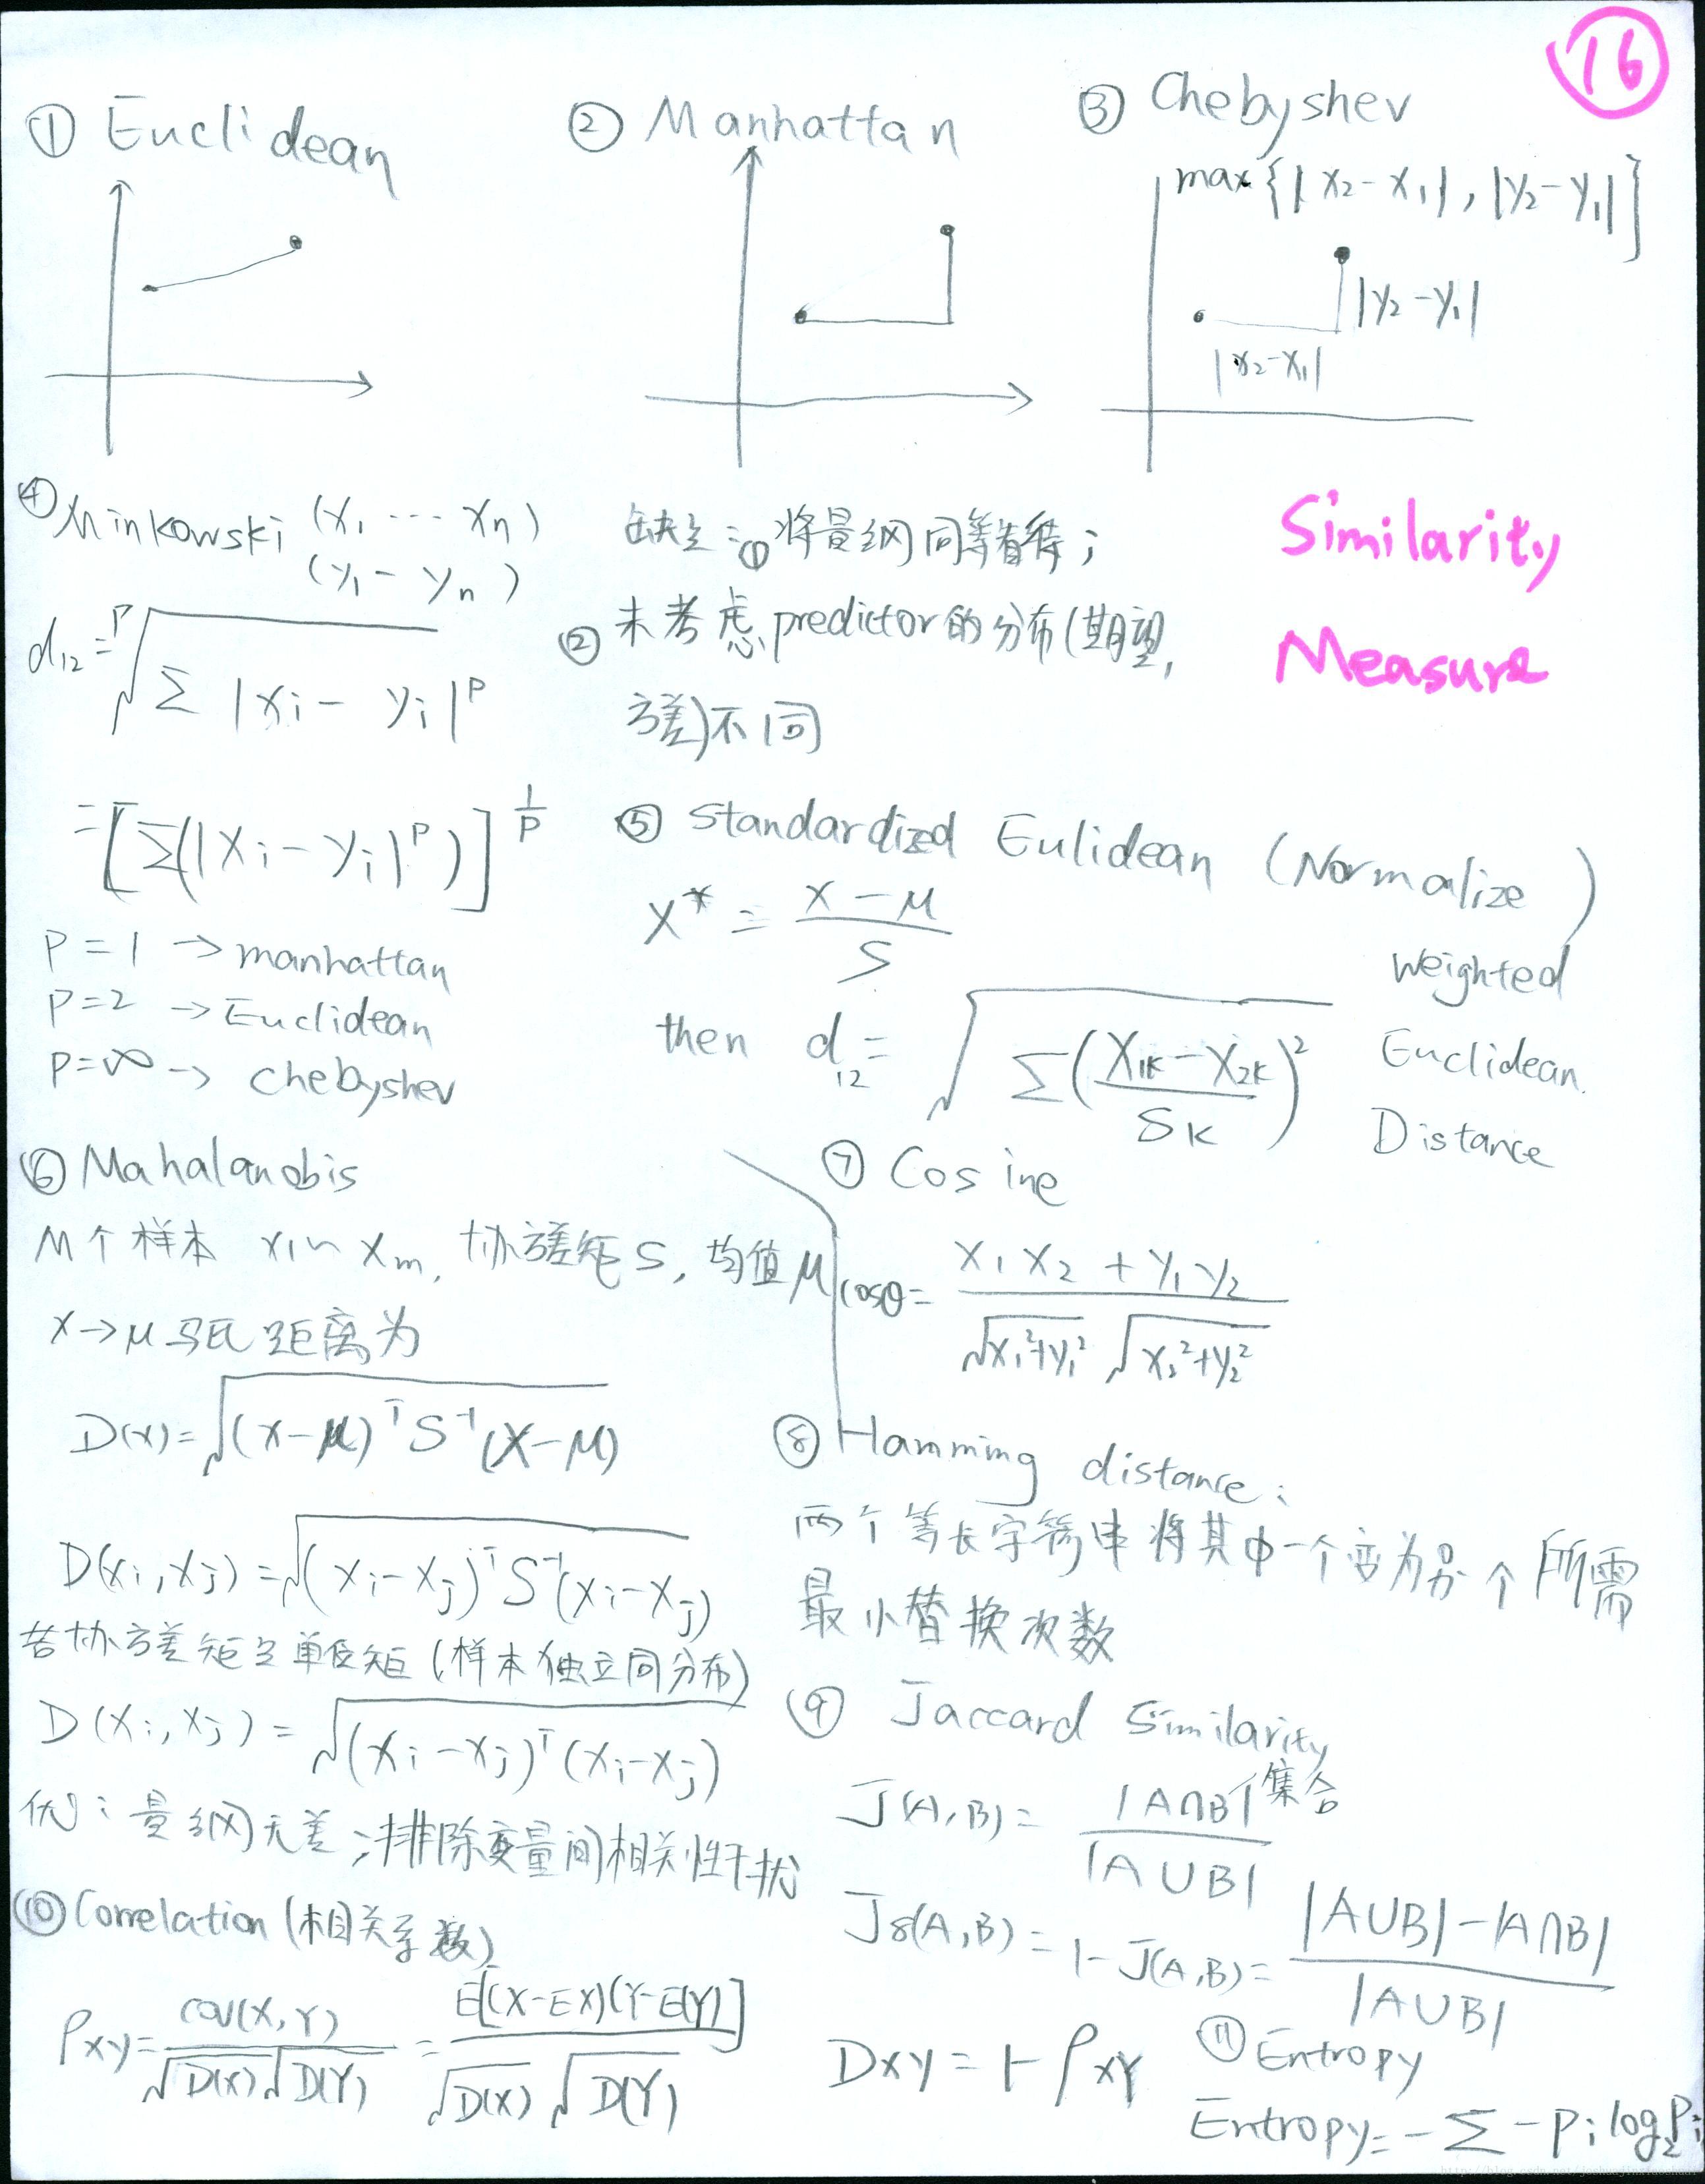 16
① Euclidean
② Manhattan
③ Chebyshev
max{|x₂-x₁|, |y₂-y₁|}
|y₂-y₁|
|x₂-x₁|
Similarity
Measure
④ Minkowski (x₁ --- xn)
(y₁ - yn)
d₁₂ = ᵖ√Σ |xi - yi|ᵖ
= [Σ(|xi - yi|ᵖ)]^(1/p)
P = 1 → manhattan
P = 2 → Euclidean
P = ∞ → chebyshev
缺点: ① 将量纲同等看待;
② 未考虑 predictor的分布(期望,
方差)不同
⑤ Standardized Eulidean (Normalize)
X* = (X - μ)/S
Weighted
Euclidean
Distance
then d₁₂ = √Σ((X1K - X2K)/SK)²
⑥ Mahalanobis
M个样本 x1~Xm, 协方差矩S, 均值μ
X→μ马氏距离为
D(x) = √(X-μ)ᵀS⁻¹(X-μ)
D(xi, xj) = √(xi-xj)ᵀS⁻¹(xi-xj)
若协方差矩是单位矩(样本独立同分布)
D(xi, xj) = √(xi-xj)ᵀ(xi-xj)
优: 量纲无差;排除变量间相关性干扰
⑦ Cosine
cosθ = (x₁x₂ + y₁y₂)/(√x₁²+y₁² √x₂²+y₂²)
⑧ Hamming distance:
两个等长字符串将其中一个变为另个所需
最小替换次数
⑨ Jaccard Similarity
J(A,B) = |A∩B|/|A∪B| 集合
Jδ(A,B) = 1-J(A,B) = (|A∪B|-|A∩B|)/|A∪B|
⑩ Correlation (相关系数)
ρxy = cov(X,Y)/(√D(X)√D(Y)) = E[(X-EX)(Y-E(Y)]/(√D(X)√D(Y))
Dxy = 1-ρXY
⑪ Entropy
Entropy = -Σ -Pi log₂Pi